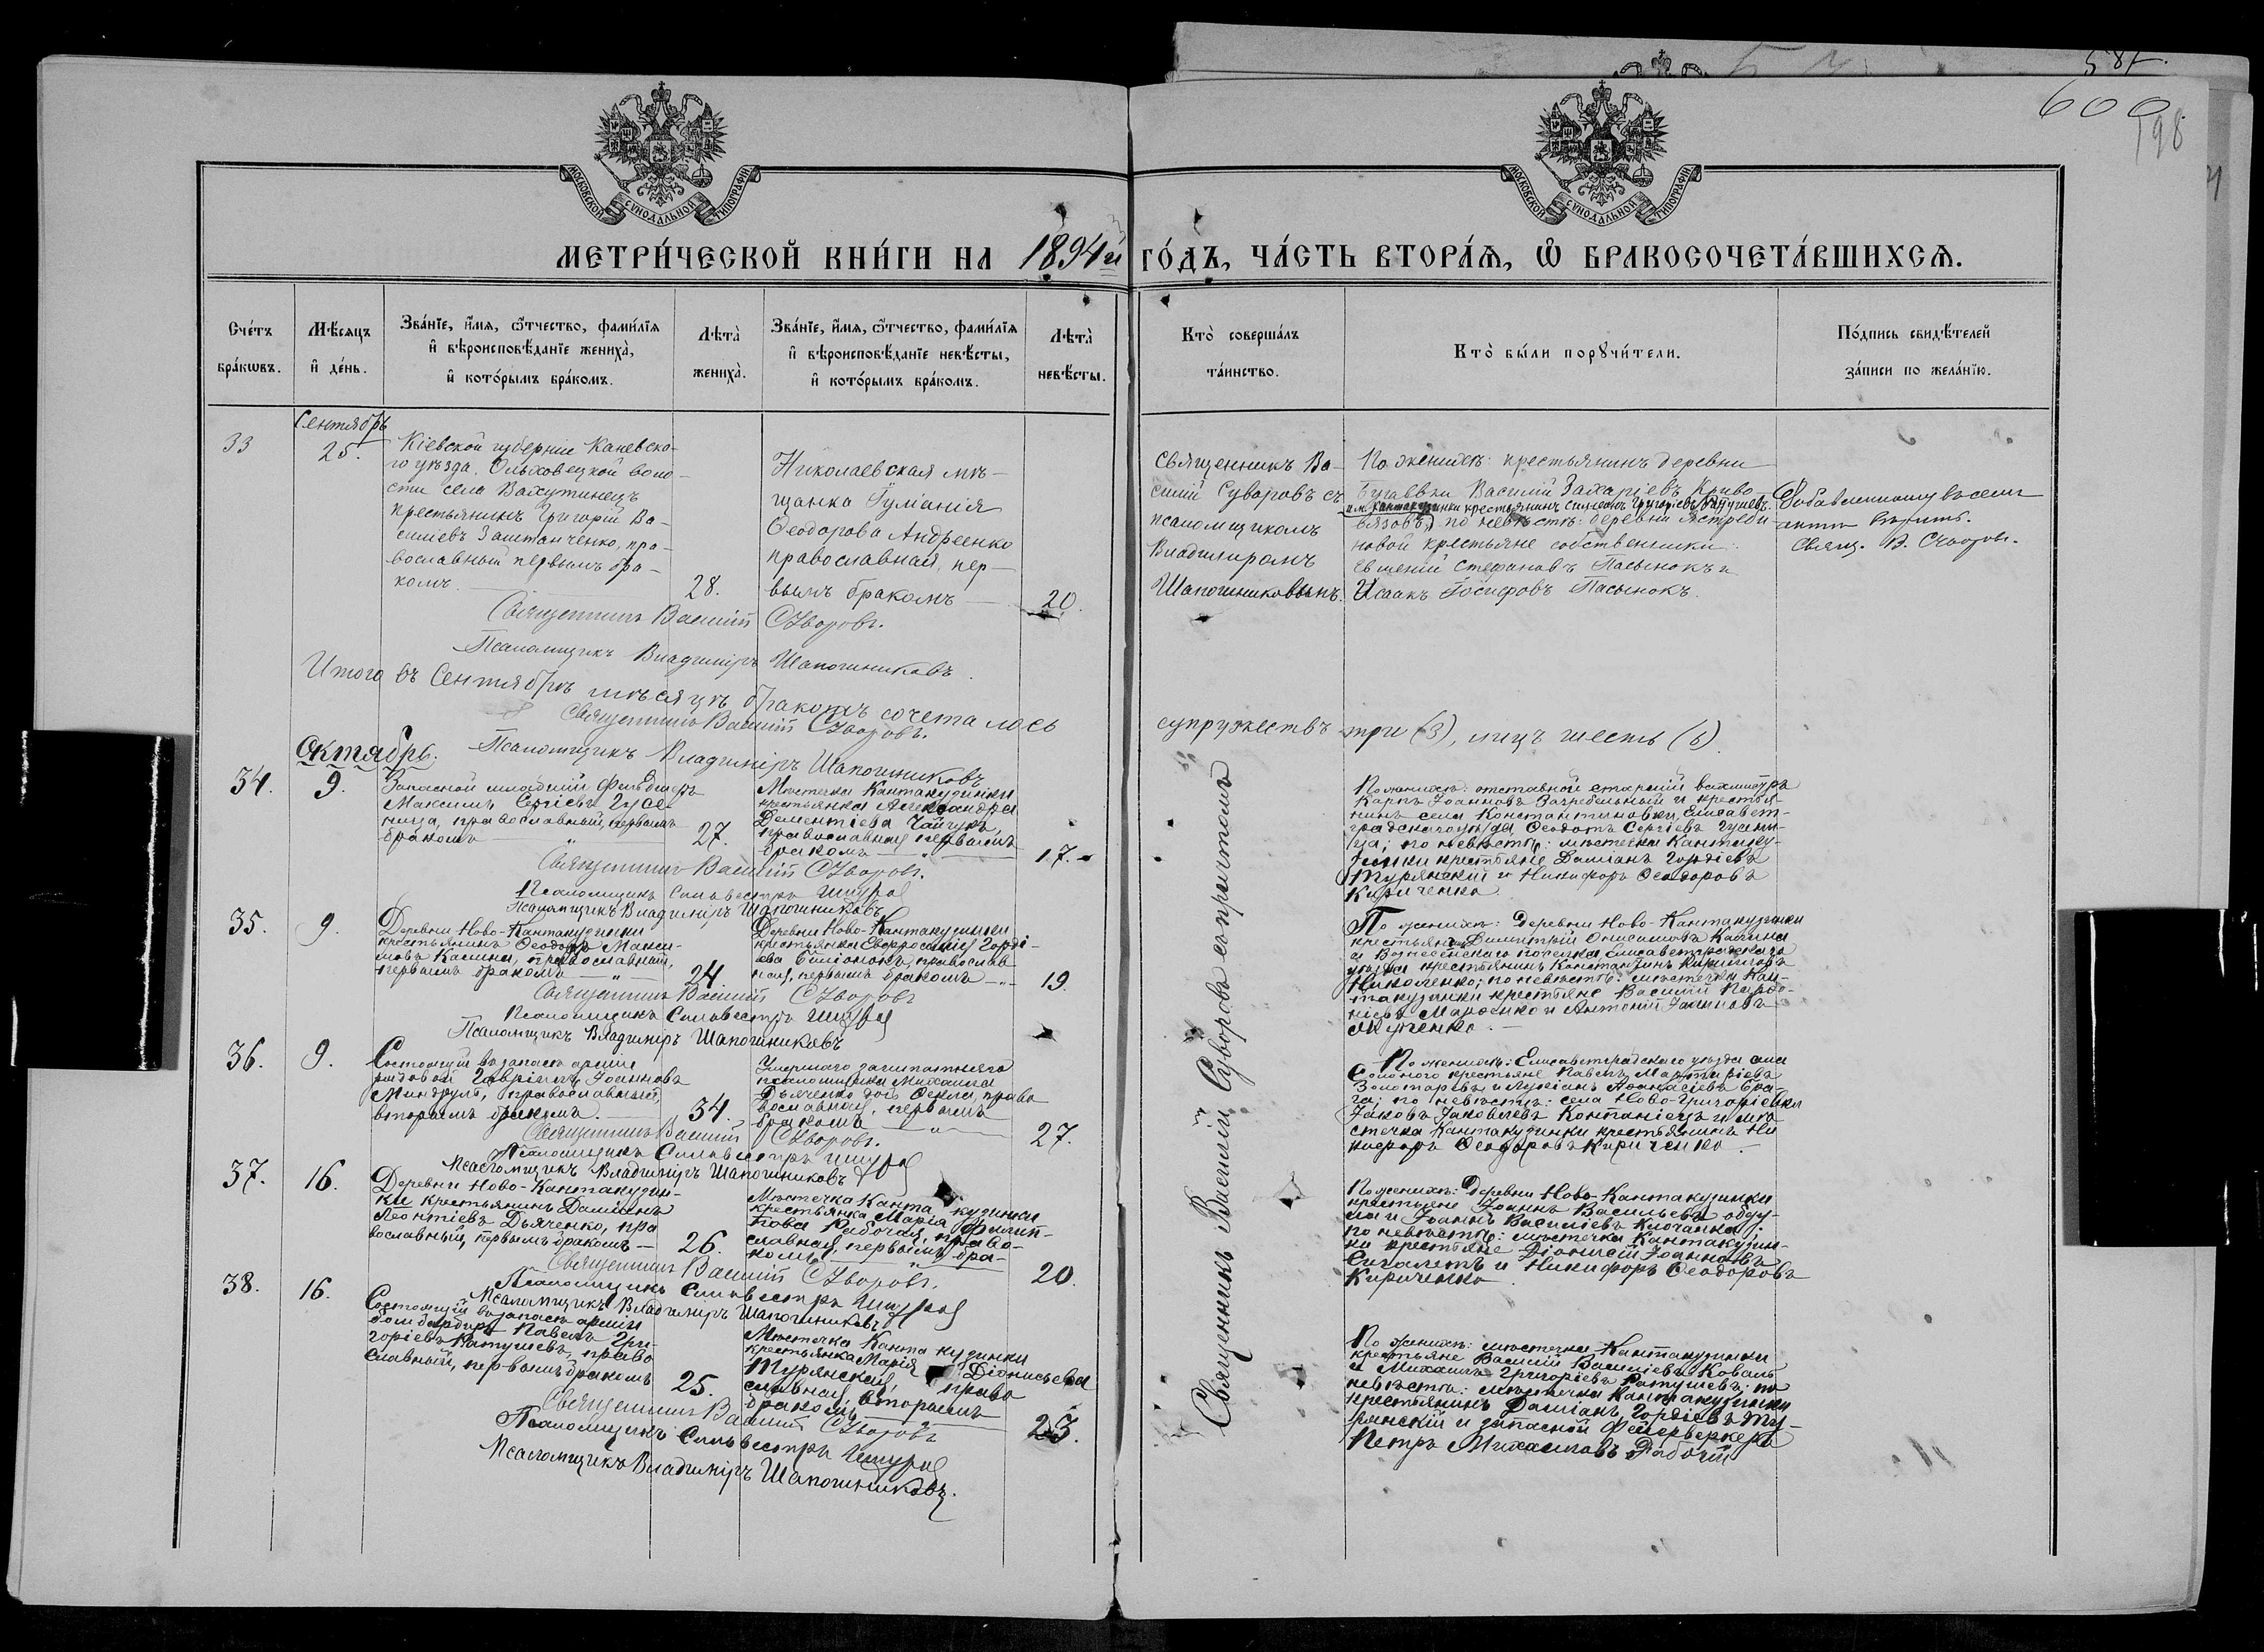 587.
600
198
МОСКОВСКОЙ СѴНОДАЛЬНОЙ ТИПОГРАФІИ
МОСКОВСКОЙ СѴНОДАЛЬНОЙ ТИПОГРАФІИ
МЕТРИ́ЧЕСКОЙ КНИ́ГИ НА 1894й ГО́ДЪ, ЧА́СТЬ ВТОРА́Ѧ, Ѽ БРАКОСОЧЕТА́ВШИХСѦ.
Сче́тъ
бра́кѡвъ.
Мѣ́сѧцъ
и҆ де́нь.
Зва́нїе, и҆́мѧ, ѻ҆́тчество, фами́лїѧ
и҆ вѣроисповѣ́данїе жениха̀,
и҆ кото́рымъ бра́комъ.
Лѣта̀
жениха̀.
Зва́нїе, и҆́мѧ, ѻ҆́тчество, фами́лїѧ
и҆ вѣроисповѣ́данїе невѣ́сты,
и҆ кото́рымъ бра́комъ.
Лѣта̀
невѣ́сты.
Кто̀ соверша́лъ
та́инство.
Кто̀ бы́ли порꙋчи́тели.
По́дпись свидѣ́телей
за́писи по жела́нїю.
Сентябрь
33
25.
Кіевской губерніи Каневска-
го уѣзда, Ольховецкой воло-
сти села Вахутинецъ
крестьянинъ Григорій Ва-
силіевъ Заштанченко, пра-
вославный первымъ бра-
комъ
28.
Николаевская мѣ-
щанка Гуліанія
Ѳеодорова Андреенко
православная, пер-
вымъ бракомъ
20.
Священникъ Ва-
силій Суворовъ съ
псаломщикомъ
Владиміромъ
Шапошниковымъ.
По женихѣ: крестьянинъ деревни
Бугаевки Василій Захаріевъ Криво-
и м. Кантакузинки крестьянинъ Симеонъ Григоріевъ Ватушевъ.
вязовъ, по невѣстѣ: деревни Ястреби-
новой крестьяне собственники:
Евменій Стефановъ Пасынокъ и
Исаакъ Іосифовъ Пасынокъ.
Добавленному въ семъ
актѣ вѣрить.
Свящ. В. Суворовъ.
Священникъ Василій Суворовъ.
Псаломщикъ Владиміръ Шапошниковъ.
Итого въ Сентябрѣ мѣсяцѣ бракомъ сочеталось
супружествъ три (3), лицъ шесть (6).
Священникъ Василій Суворовъ.
Псаломщикъ Владиміръ Шапошниковъ
Октябрь.
34.
9.
Запасной младшій фельдшеръ
Максимъ Сергіевъ Гусе-
ница, православный, первымъ
бракомъ
27.
Мѣстечка Кантакузинки
крестьянка Александра
Дементіева Чайчукъ,
православная первымъ
бракомъ
17.
По женихѣ: отставной старшій вахмистръ
Карпъ Іоанновъ Загребельный и крестья-
нинъ села Константиновки, Елисавет-
градскаго уѣзда Ѳеодотъ Сергіевъ Гусени-
ца; по невѣстѣ: мѣстечка Кантаку-
зинки крестьяне Даміанъ Гордіевъ
Турянскій и Никифоръ Ѳеодоровъ
Кириченко
Священникъ Василій Суворовъ.
Псаломщикъ Сильвестръ Щуръ
Псаломщикъ Владиміръ Шапошниковъ
35.
9.
Деревни Ново-Кантакузинки
крестьянинъ Ѳеодоръ Макси-
мовъ Калина, православный,
первымъ бракомъ
24
Деревни Ново-Кантакузинки
крестьянка Евфросинія Горді-
ева православ-
ная, первымъ бракомъ
19.
По женихѣ: Деревни Ново-Кантакузинки
крестьянинъ Димитрій Онисимовъ Калина
и Вознесенскаго поселка Елисаветградскаго
уѣзда крестьянинъ Константинъ
Николенко; по невѣстѣ: мѣстечка Кан-
такузинки крестьяне Василій
Марченко и Антоній
Священникъ Василій Суворовъ
Псаломщикъ Сильвестръ Щуръ
Псаломщикъ Владиміръ Шапошниковъ
36.
9.
Состоящій въ запасѣ арміи
рядовой Гавріилъ Іоанновъ
православный,
вторымъ бракомъ.
34.
Умершаго заштатнаго
псаломщика Михаила
Дьяченко дочь Ѳекла, право
вославная, первымъ
бракомъ
27.
По женихѣ: Елисаветградскаго уѣзда села
крестьяне Павелъ
Золотаревъ и Лукіанъ Аѳанасіевъ
по невѣстѣ: села Ново-Григоріевки
Іаковъ Іаковлевъ Компаніецъ и мѣ-
стечка Кантакузинки крестьянинъ Ни
кифоръ Ѳеодоровъ Кириченко.
Священникъ Василій Суворовъ.
Псаломщикъ Сильвестръ Щуръ
Псаломщикъ Владиміръ Шапошниковъ
37.
16.
Деревни Ново-Кантакузин-
ки крестьянинъ Даміанъ
Леонтіевъ Дьяченко, пра
вославный, первымъ бракомъ
26.
Мѣстечка Кантакузинки
крестьянка Марія Филип-
пова Рабочая, право-
славная, первымъ бра-
комъ
20.
По женихѣ: Деревни Ново-Кантакузинки
крестьяне Іоаннъ Васильевъ
и Іоаннъ Василіевъ
по невѣстѣ: мѣстечка Кантакузин-
ки крестьяне Діонисій Іоанновъ
и Никифоръ Ѳеодоровъ
Кириченко
Священникъ Василій Суворовъ.
Псаломщикъ Сильвестръ Щуръ
Псаломщикъ Владиміръ Шапошниковъ
38.
16.
Состоящій въ запасѣ арміи
бомбардиръ Павелъ Гри-
горіевъ Ратушевъ, право
славный, первымъ бракомъ
25.
Мѣстечка Кантакузинки
крестьянка Марія Діонисьева
Турянская, право
славная, вторымъ
бракомъ
23.
По женихѣ: мѣстечка Кантакузинки
крестьяне Василій Василіевъ Коваль
и Михаилъ Григоріевъ Ратушевъ; по
невѣстѣ: мѣстечка Кантакузинки
крестьянинъ Даміанъ Гордіевъ Ту-
рянскій и запасной Фейерверкеръ
Петръ Михаиловъ Рабочій
Священникъ Василій Суворовъ
Псаломщикъ Сильвестръ Щуръ
Псаломщикъ Владиміръ Шапошниковъ.
Священникъ Василій Суворовъ съ причтомъ